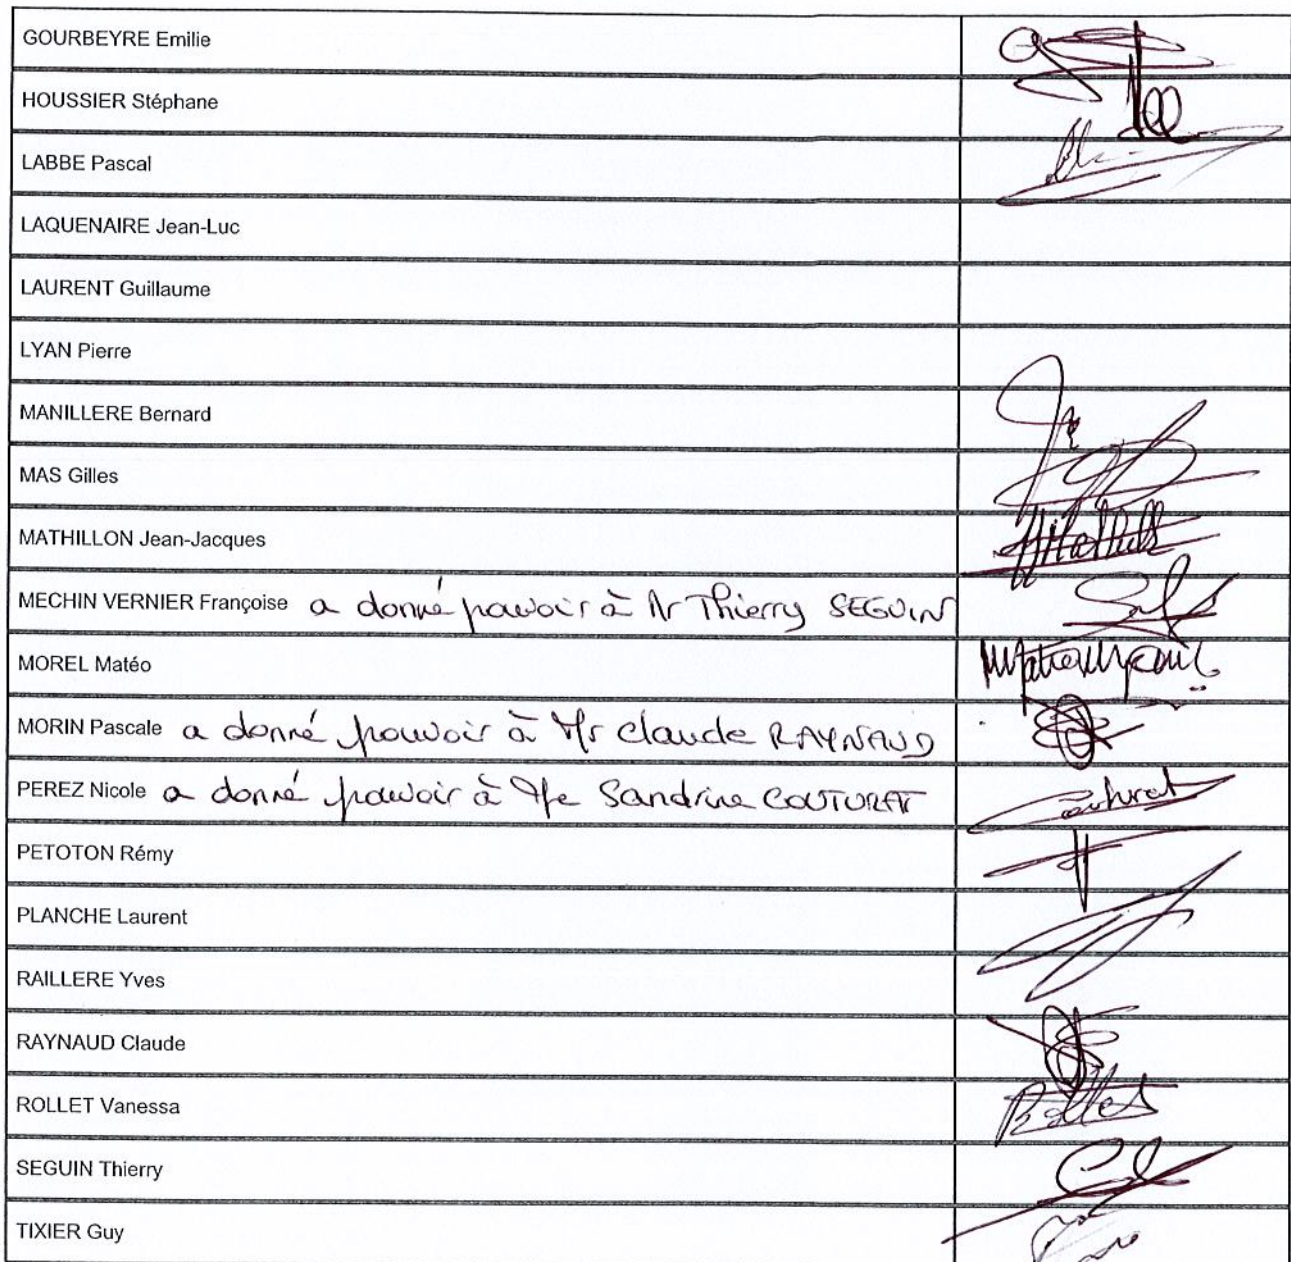 GOURBEYRE Emilie
HOUSSIER Stéphane
LABBE Pascal
LAQUENAIRE Jean-Luc
LAURENT Guillaume
LYAN Pierre
MANILLERE Bernard
MAS Gilles
MATHILLON Jean-Jacques
MECHIN VERNIER Françoise a donné pouvoir à Mr Thierry SEGUIN
MOREL Matéo
MORIN Pascale a donné pouvoir à Mr Claude RAYNAUD
PEREZ Nicole a donné pouvoir à Me Sandrine COUTURAT
Couturat
PETOTON Rémy
PLANCHE Laurent
RAILLERE Yves
RAYNAUD Claude
ROLLET Vanessa
Rollet
SEGUIN Thierry
TIXIER Guy